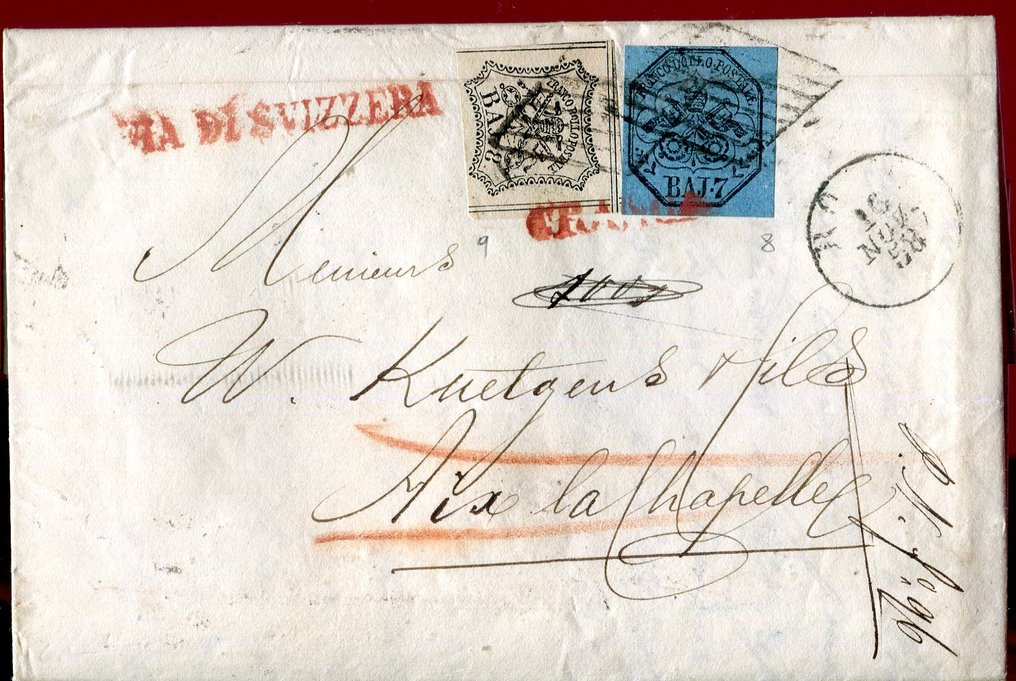 VIA DI SVIZZERA
FRANCO BOLLO POSTALE
BAJ 8
FRANCO BOLLO POSTALE
BAJ·7
9
8
16
NOV
58
Messieurs
W. Kuetgens & Fils
Aix la Chapelle